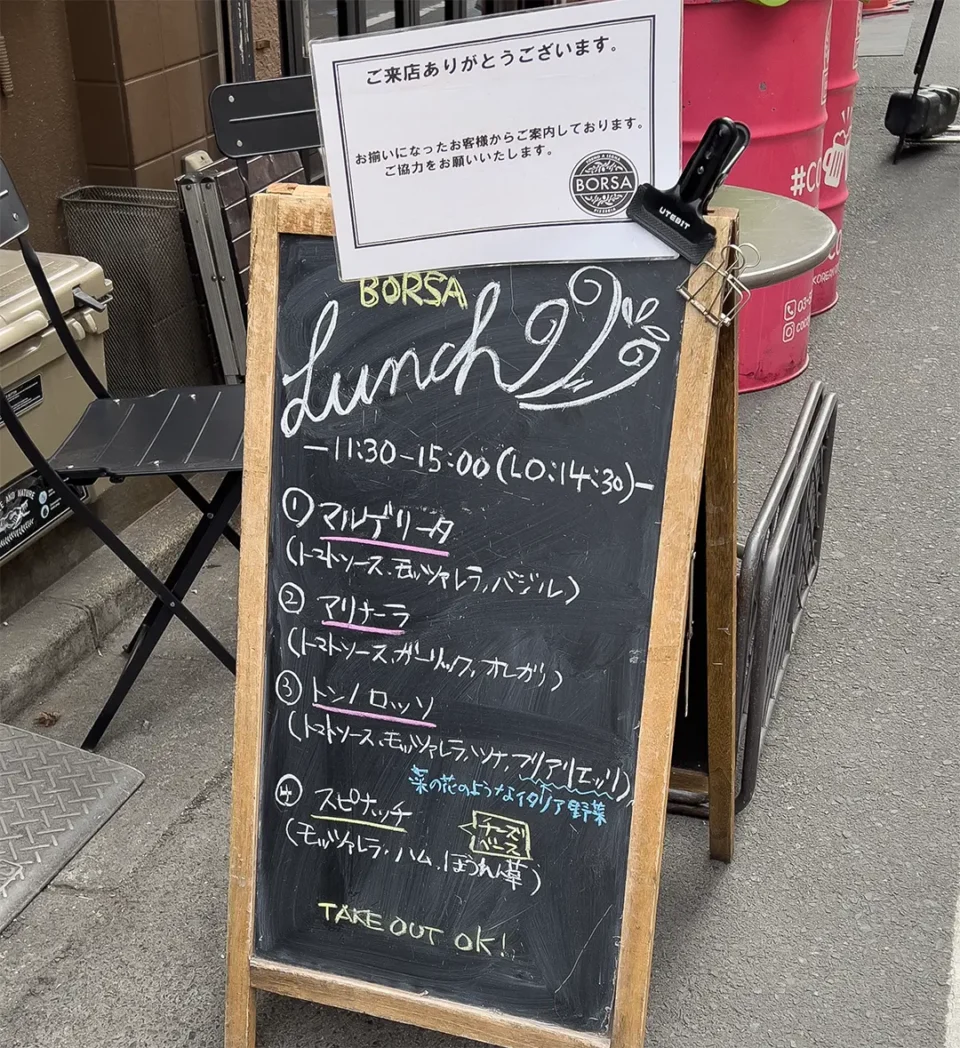 ご来店ありがとうございます。
お揃いになったお客様からご案内しております。
ご協力をお願いいたします。
BORSA
UTEBIT
BORSA
Lunch
-11:30-15:00(LO:14:30)-
① マルゲリータ
(トマトソース、モッツァレラ、バジル)
② マリナーラ
(トマトソース、ガーリック、オレガノ)
③ トンノロッソ
(トマトソース、モッツァレラ、ツナ、フリアリエッリ)
菜の花のようなイタリア野菜
④ スピナッチ
チーズ
ベース
(モッツァレラ、ハム、ほうれん草)
TAKE OUT OK!